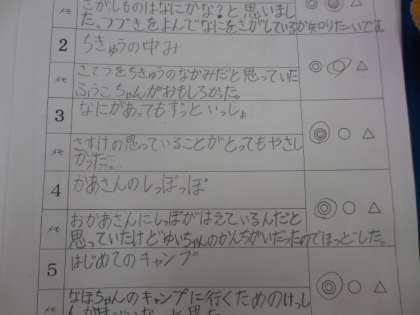 さがしものはなにかな?と思いまし
た。つづきをよんでなにをさがしているか知りたいです。
2 ちきゅうの中み
メモ
さてつをちきゅうのなかみだと思っていた
ふうこちゃんがおもしろかった。
◎ ○ △
3 なにがあってもずっといっしょ
メモ
さすけの思っていることがとってもやさし
かった。
◎ ○ △
4 かあさんのしっぽっぽ
メモ
おかあさんにしっぽがはえているんだと
思っていたけどゆいちゃんのかんちがいだったのでほっとした。
◎ ○ △
5 はじめてのキャンプ
メモ
なほちゃんのキャンプに行くためのけっし
◎ ○ △